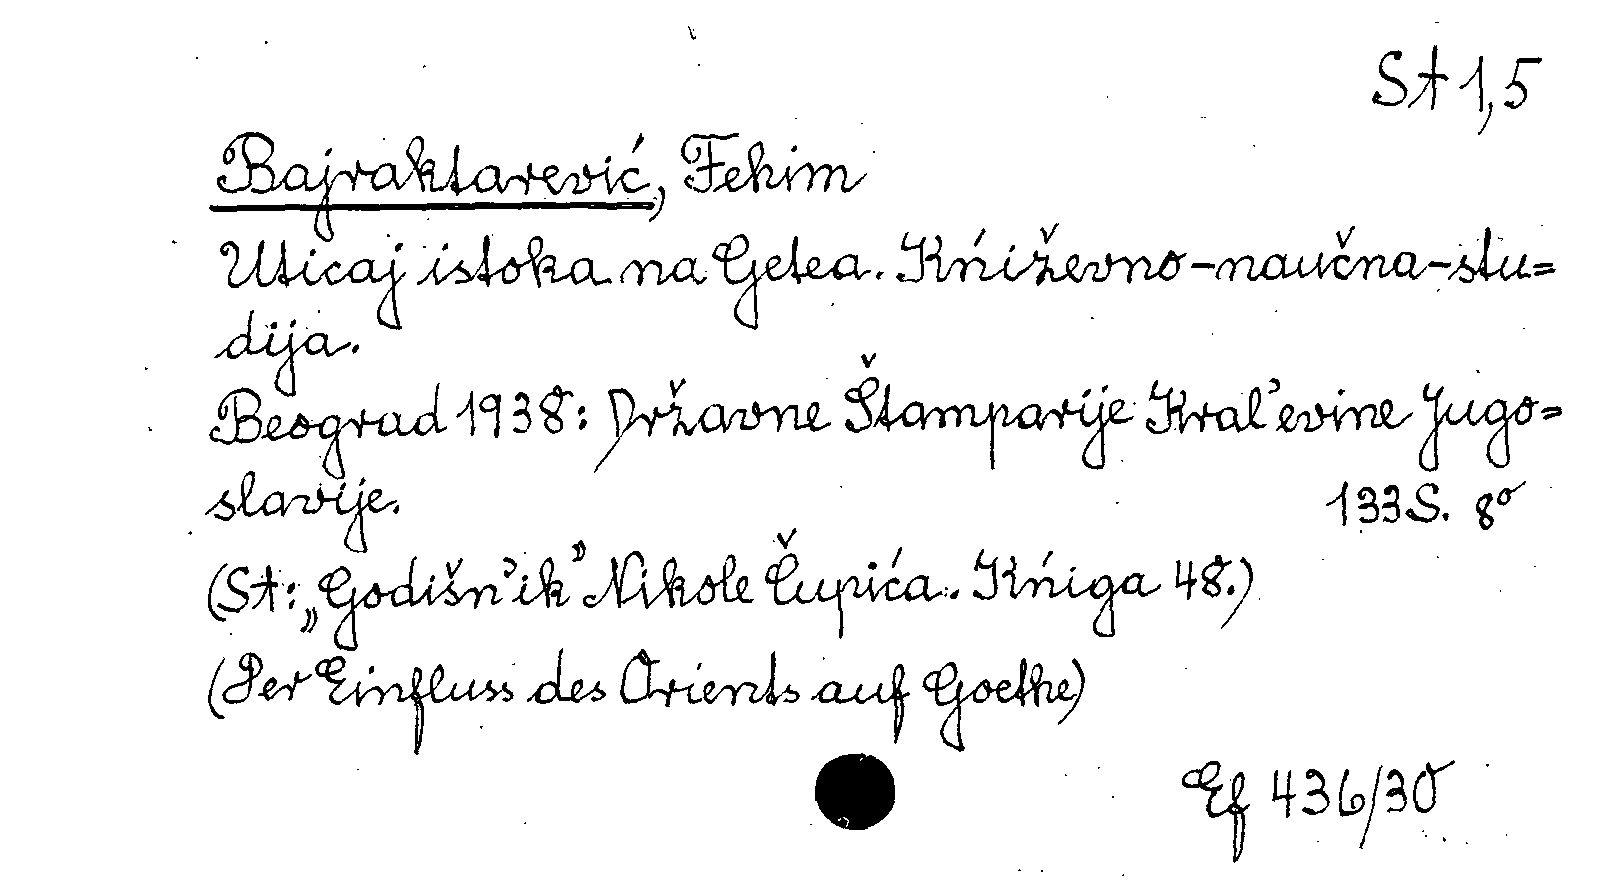 St 1,5
Bajraktarević, Fehim
Uticaj istoka na Getea. Kńiževno-naučna-stu=
dija.
Beograd 1938: Državne Štamparije Kral'evine Jugo=
slavije.
133 S. 8°
(St: „Godišn'ik” Nikole Čupića. Kńiga 48.)
(Der Einfluss des Orients auf Goethe)
Ef 436/30